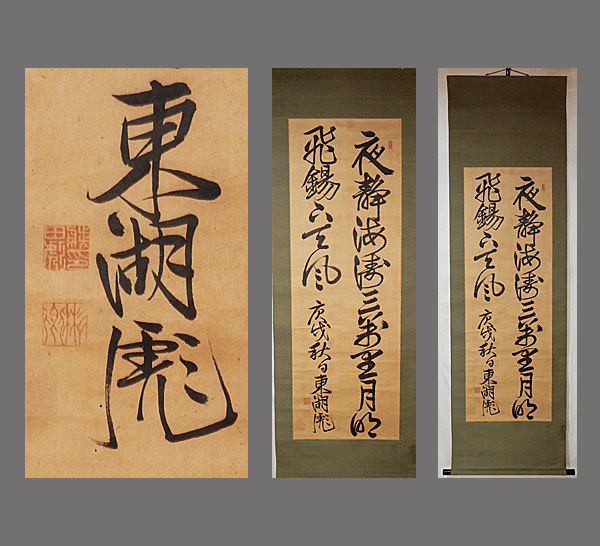 東湖彪
夜静海濤三萬里月明
飛錫下天風 庚戌秋日東湖彪
夜静海濤三萬里月明
飛錫下天風 庚戌秋日東湖彪